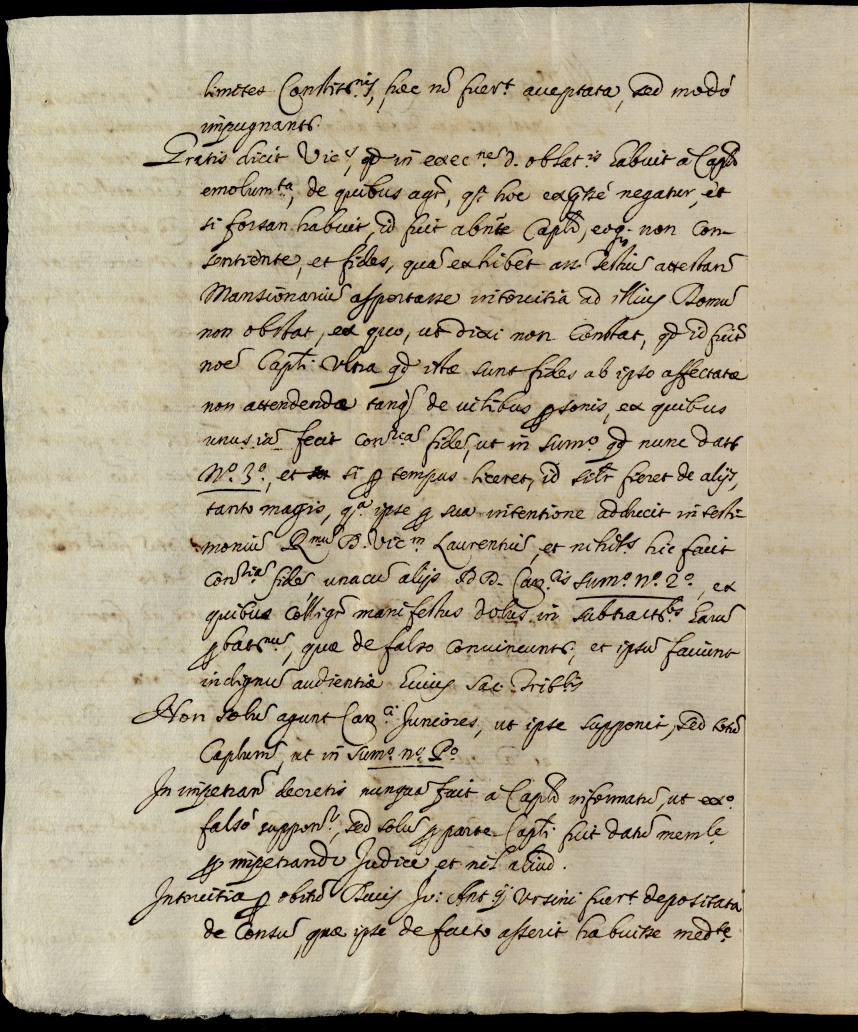 limites Constit.nis, hec nō fuert acceptata, sed modó
impugnantr.
Gratis dicit Vic.s, qd in exec.ne d. oblat.is habuit à Caplō
emolum.ta, de quibus agr, qa hoc negatur, et
si forsan habuit, id fuit abnte Caplō, eoq. non con-
sentiente, et fides, quā exhibet attestanē
Mansionariū asportasse intorcitia ad illius Domū
non obstat, ex quo, ut dixi non constat, qd id fuit
noē Capli. Ultra qd istæ sunt fides ab ipso affectatæ
non attendendæ tanq de vilibus psonis, ex quibus
unus fecit con.riā fidē, ut in sum.o qd nunc datr
N.o 3.o, et si p tempus liceret, id silr fieret de alijs,
tanto magis, q.a ipse p sua intentione adducit in testi-
moniū R.mū D. Vic.m Laurentiū, et nihil.s hic facit
con.riā fidē unacū alijs DD. Can.cis sum.o n.o 2.o, ex
quibus colligr manifestus dolus in subtract.bs harū
pbat.nū, quæ de falso convincunt, et ipsū faciunt
indignū audientiæ huius Sac. Trib.lis
Non solū agunt Can.ci Juniores, ut ipse supponit, sed totū
Caplum, ut in sum.o n.o P.o
In impetranē decretis nunquā fuit à Caplō informatū, ut ex.o
falsó supponr, sed solū p parte Capli fuit datū memle
p impetrando Judice, et nil aliud.
Intorcitia p obitū Ducis Jo: Ant.ij Ursini fuert depositata
de consū, quæ ipse de facto asserit habuisse med.te